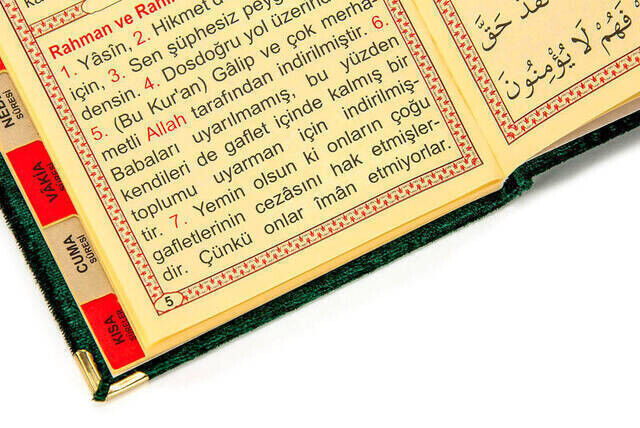 Rahman ve Rahi
1. Yâsîn, 2. Hikmet d
için, 3. Sen şüphesiz peyg
densin. 4. Dosdoğru yol üzerind
5. (Bu Kur'an) Gâlip ve çok merha-
metli Allah tarafından indirilmiştir. 6.
Babaları uyarılmamış, bu yüzden
kendileri de gaflet içinde kalmış bir
toplumu uyarman için indirilmiş-
tir. 7. Yemin olsun ki onların çoğu
gafletlerinin cezâsını hak etmişler-
dir. Çünkü onlar îmân etmiyorlar.
5
حَقَّ
فَهُمْ لَا يُؤْمِنُونَ
SÛRESİ
VÂKIA
SÛRESİ
CUMA
SÛRESİ
KISA
SÛRELER